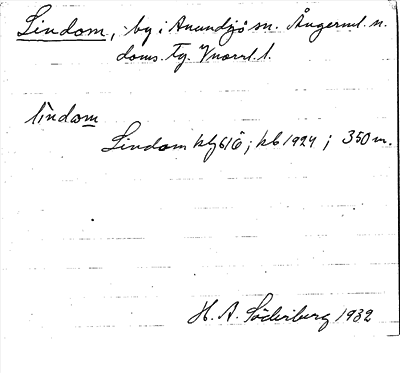 Lindom, by i Anundsjö sn. Ångerml. n.
doms. fg. Vnorrl. l.
lìndom
Lindom hfl 616; kb 1924; 350 m.
H. A. Söderberg 1932